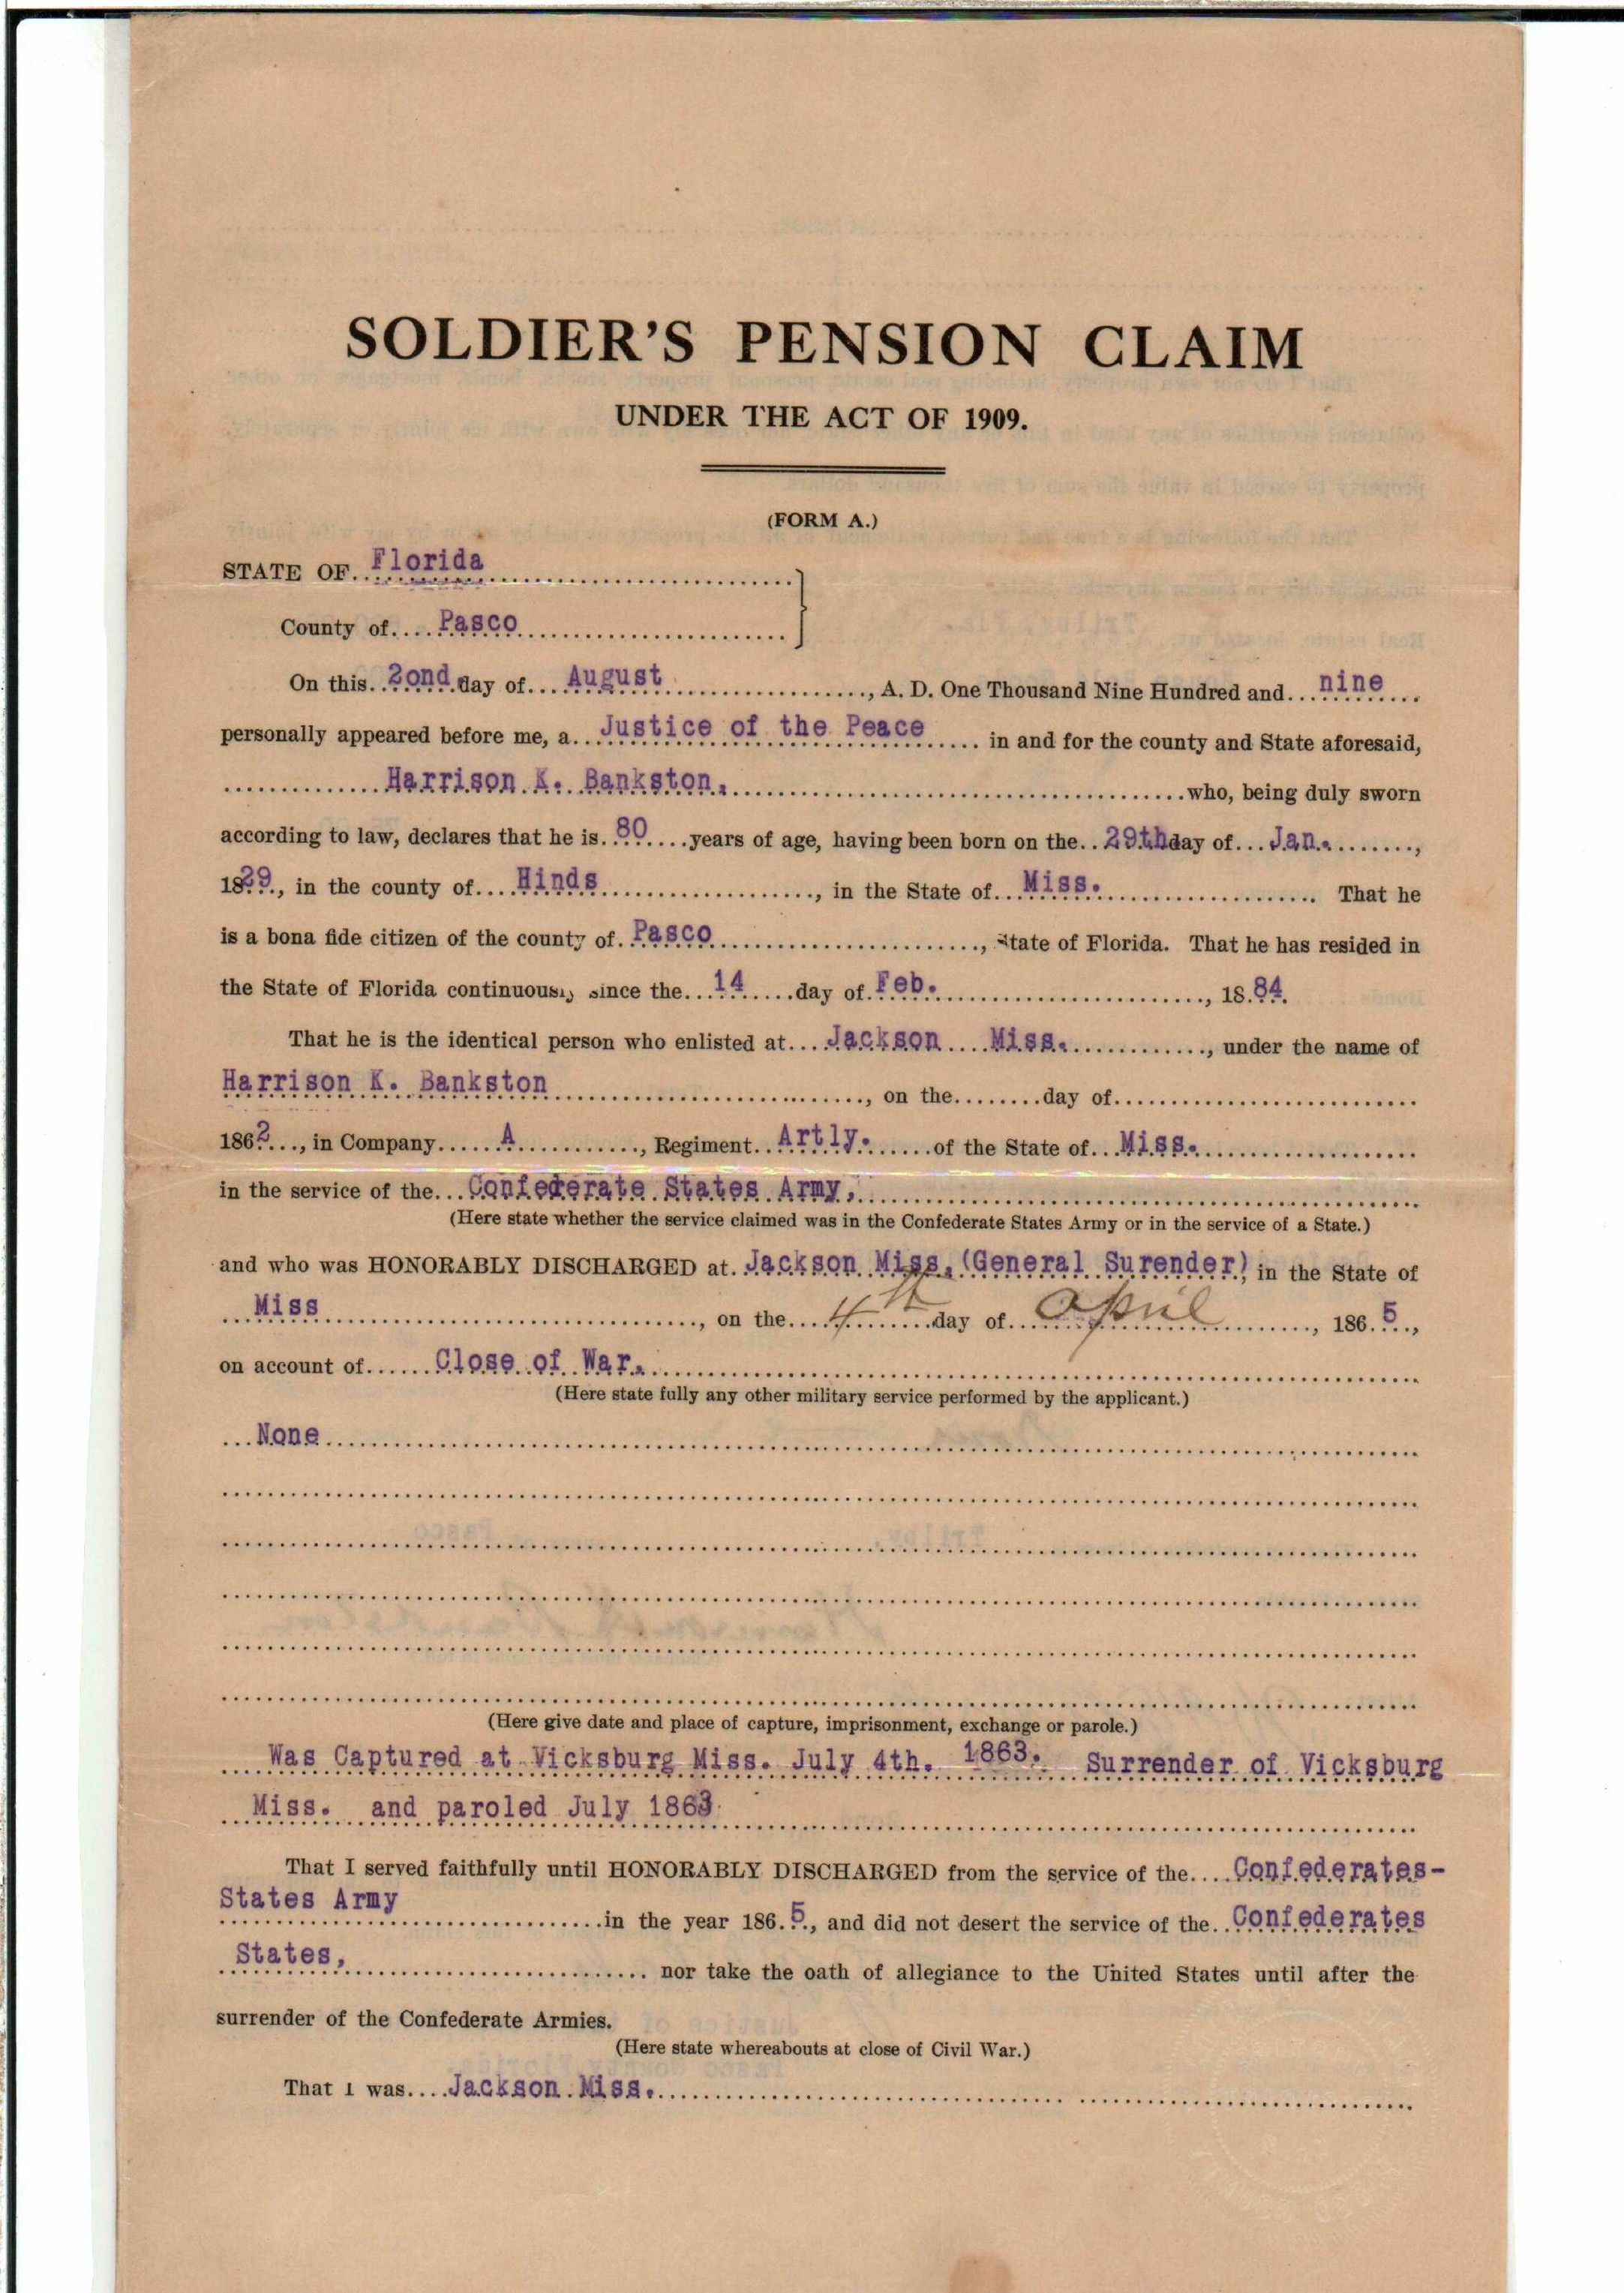 SOLDIER'S PENSION CLAIM
UNDER THE ACT OF 1909.
(FORM A.)
STATE OF Florida
County of Pasco
On this 2ond day of August, A. D. One Thousand Nine Hundred and nine
personally appeared before me, a Justice of the Peace in and for the county and State aforesaid,
Harrison K. Bankston, who, being duly sworn
according to law, declares that he is 80 years of age, having been born on the 29th day of Jan.,
1829, in the county of Hinds, in the State of Miss. That he
is a bona fide citizen of the county of Pasco, State of Florida. That he has resided in
the State of Florida continuously since the 14 day of Feb., 1884.
That he is the identical person who enlisted at Jackson Miss., under the name of
Harrison K. Bankston, on the day of
1862, in Company A, Regiment Artly. of the State of Miss.
in the service of the Confederate States Army,
(Here state whether the service claimed was in the Confederate States Army or in the service of a State.)
and who was HONORABLY DISCHARGED at Jackson Miss, (General Surender) in the State of
Miss, on the 4th day of April, 1865,
on account of Close of War.
(Here state fully any other military service performed by the applicant.)
None
(Here give date and place of capture, imprisonment, exchange or parole.)
Was Captured at Vicksburg Miss. July 4th. 1863. Surrender of Vicksburg
Miss. and paroled July 1863.
That I served faithfully until HONORABLY DISCHARGED from the service of the Confederates-
States Army in the year 1865, and did not desert the service of the Confederates
States, nor take the oath of allegiance to the United States until after the
surrender of the Confederate Armies.
(Here state whereabouts at close of Civil War.)
That I was Jackson Miss.